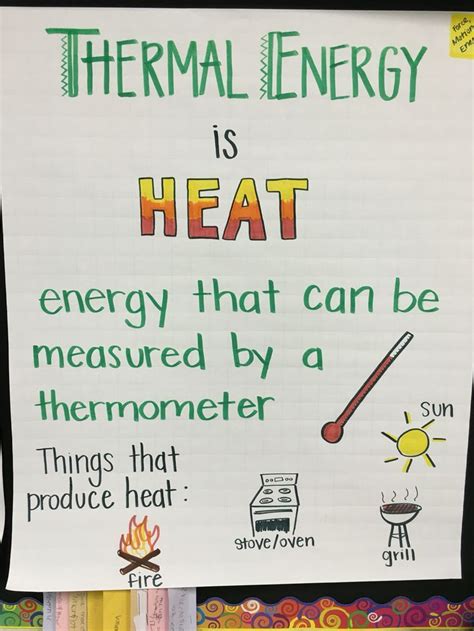 THERMAL ENERGY
Force,
Motion
is
HEAT
energy that can be
measured by a
thermometer
sun
Things that
produce heat:
stove/oven
grill
fire